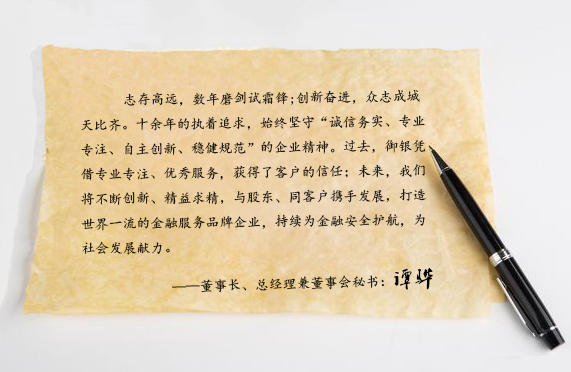 志存高远，数年磨剑试霜锋;创新奋进，众志成城
天比齐。十余年的执着追求，始终坚守“诚信务实、专业
专注、自主创新、稳健规范”的企业精神。过去，御银凭
借专业专注、优秀服务，获得了客户的信任；未来，我们
将不断创新、精益求精，与股东、同客户携手发展，打造
世界一流的金融服务品牌企业，持续为金融安全护航，为
社会发展献力。
——董事长、总经理兼董事会秘书：谭骅